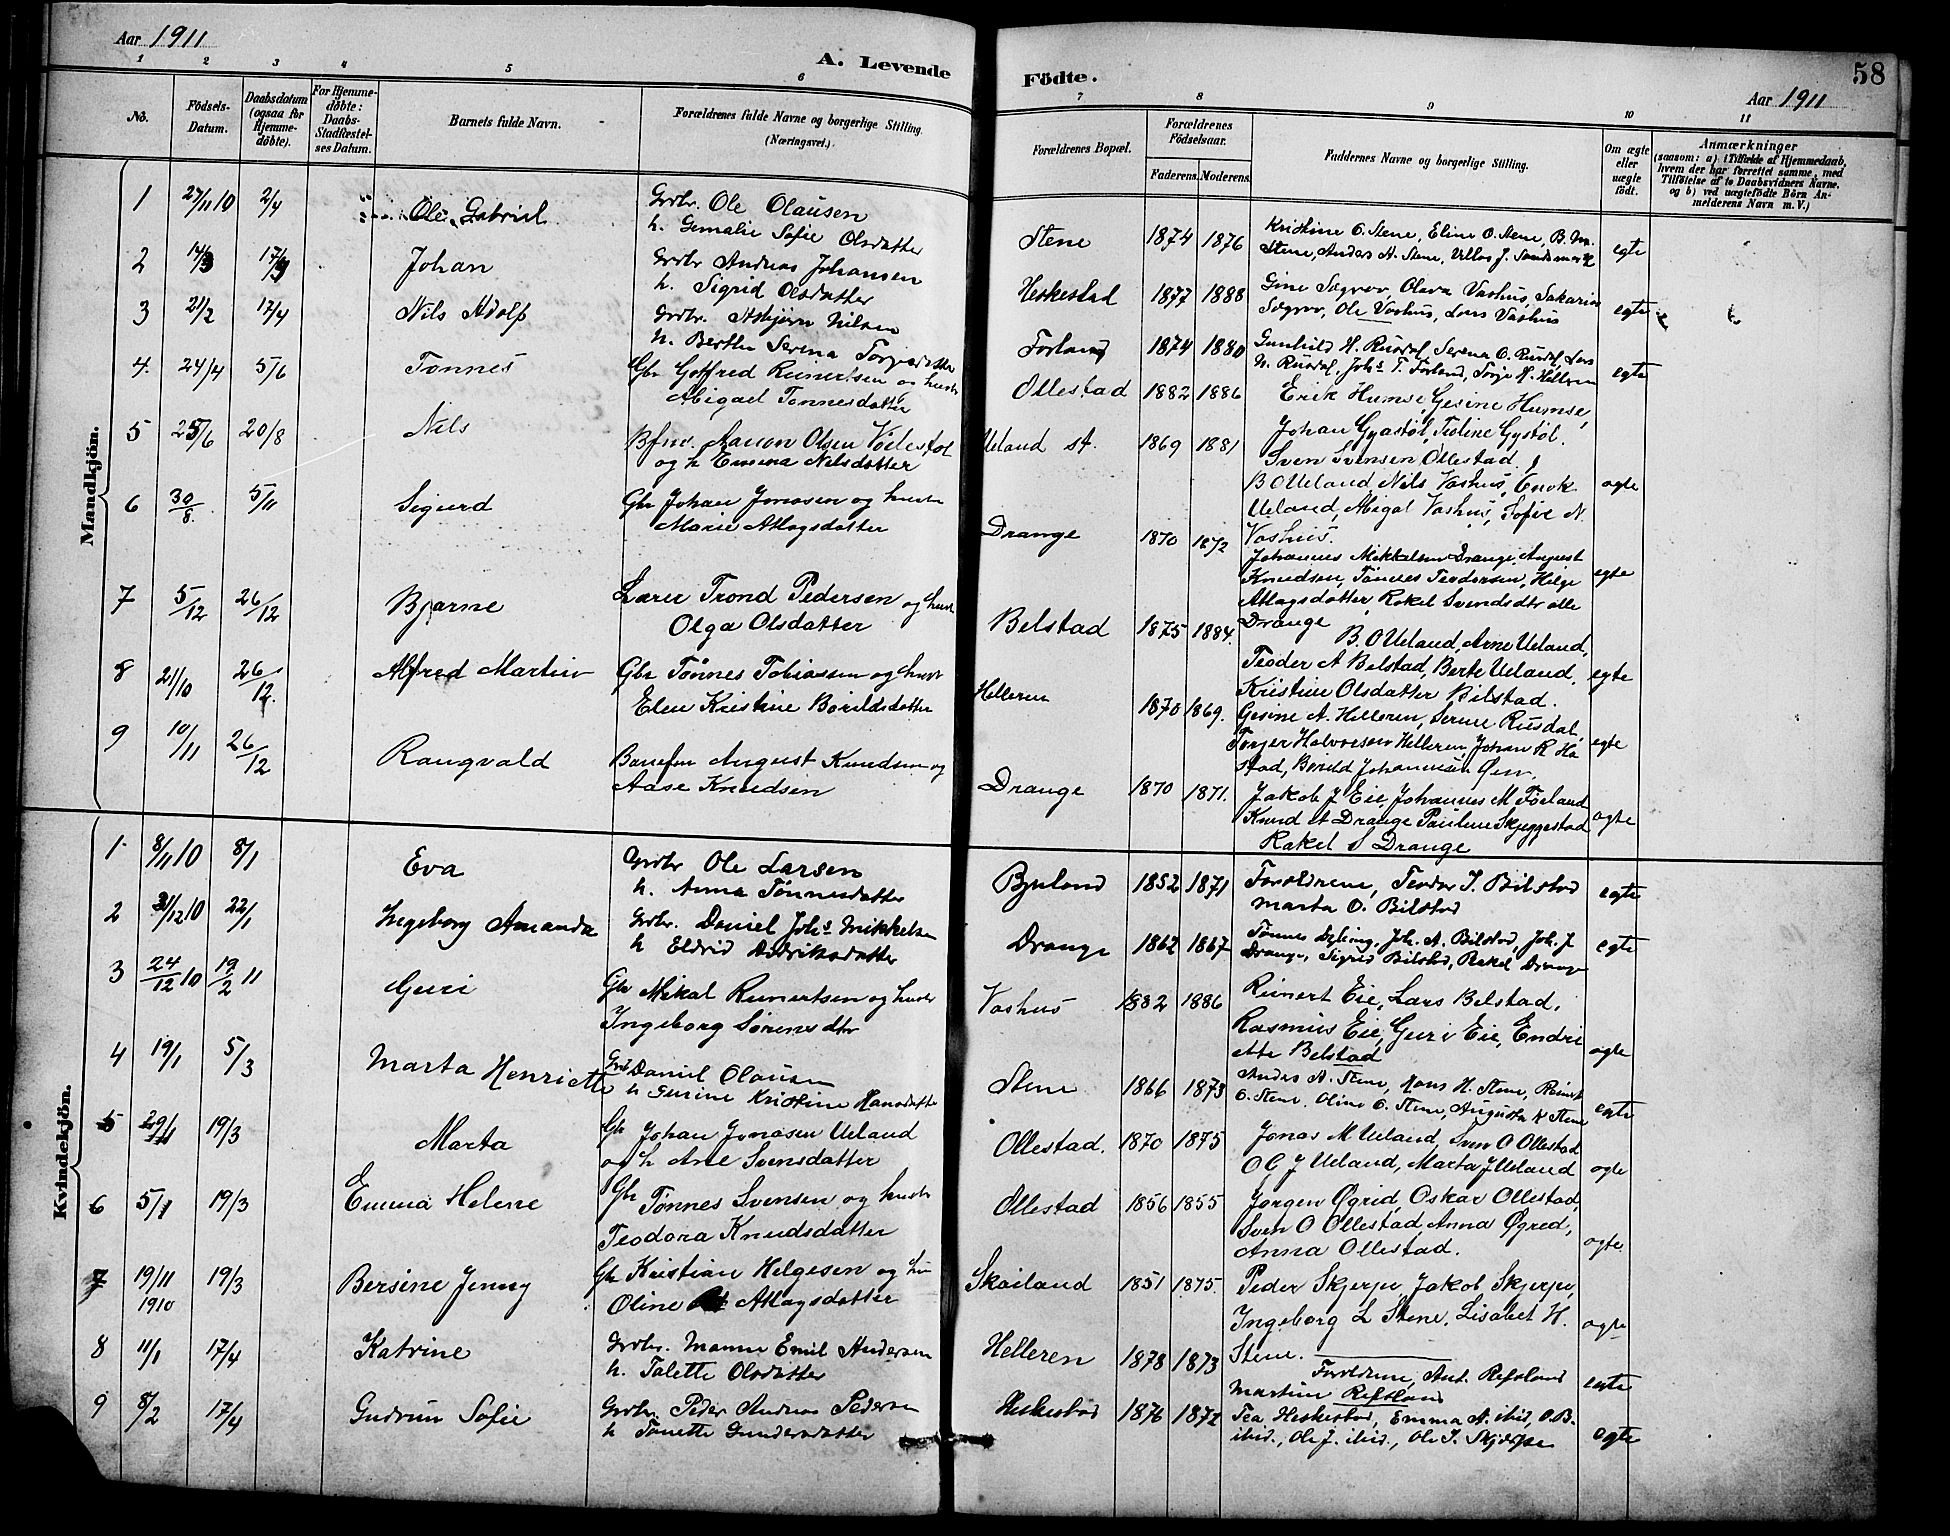 Aar 1911
A. Levende
Födte.
58
Aar 1911
1 2 3 4 5 6 7 8 9 10 11
No.
Födsels-Datum.
Daabsdatum (ogsaa for Hjemme-döbte).
For Hjemme-döbte: Daabs-Stadfæstel-ses Datum.
Barnets fulde Navn.
Forældrenes fulde Navne og borgerlige Stilling. (Næringsvei.)
Forældrenes Bopæl.
Forældrenes Födselsaar.
Faderens. Moderens.
Faddernes Navne og borgerlige Stilling.
Om ægte eller uægte födt.
Anmærkninger
(saasom: a) i Tilfælde af Hjemmedaab, hvem der har forrettet samme, med Tilföielse af to Daabsvidners Navne. og b) ved uægtefödte Börn An-melderens Navn m. V.)
Mandkjön.
1 27/11 10 2/4 Ole Gabriel Grdbr. Ole Olausen
h. Gemalie Sofie Olsdatter
Stene 1874 1876 Kristine O. Stene, Eline O. Stene, B. M.
Stene, Anders A. Stene, J. Sandsmark egte
2 14/3 17/4 Johan Grdbr Andreas Johansen
h. Sigrid Olsdatter
Heskestad 1877 1888 Gine Sægrov, Olava Vashus, Sakarias
Sægrov, Ole Vashus, Lars Vashus egte
3 21/2 17/4 Nils Adolf Grdbr. Asbjørn Nilsen
h. Berthe Serena Torgersdatter
Forland 1874 1880 Gunhild H. Rusdal, Serena O. Rusdal, Lars
N. Rusdal, Johs T. Forland, Torje H. Helleren egte
4. 24/4 5/6 Tønnes Gbr Gotfred Reinertsen og hustr
Abigael Tønnesdatter
Ollestad 1882 1886 Erik Humse, Gesine Humse,
Johan Gyastøl, Teoline Gystøl.
Sven Svensen Ollestad.
5 25/6 20/8 Nils Bfm. Aanon Olsen
og h Emma Nilsdatter
Ueland st. 1869 1881
B O Ueland, Nils Vashus, Enok
Ueland, Abigal Vashus, Sofie N.
Vashus. egte
6 30/8. 5/11 Sigurd Gbr Johan Jonasen og hustr
Marie Atlagsdatter
Drange 1870 1872
Johannes Mikkelsen Drange, August
Knudsen, Tønnes Teodorsen, Helge
Atlagsdatter, Rakel Svendsdtr alle
Drange egte
7 5/12 26/12 Bjarne Lærer Trond Pedersen og hustr
Olga Olsdatter
Belstad 1875 1884.
B. O Ueland, Arne Ueland,
Teoder A Belstad, Berte Ueland,
Kristine Olsdatter Bilstad. egte
8 21/10 26/12. Alfred Martin Gbr Tønnes Tobiassen og hustr
Elen Kristine Borildsdatter
Helleren 1870 1869.
Gesine A. Helleren, Serine Rusdal,
Torjer Halvorsen Helleren, Johan R Ha
stad, Borild Johannesen egte
9 10/11 26/12 Rangvald August Knudsen og
Aase Knudsen
Drange 1870 1871.
Jakob J Eie, Johannes M Føeland
Knud A Drange, Pauline Skjeggestad
Rakel S Drange egte
Kvindekjön.
1 8/11 10 8/1 Eva Grdbr Ole Larsen
h. Anna Tønnesdatter
Bjuland 1852 1871 Forældrene, Teodor T. Bilstad
Marta O. Bilstad egte
2 31/12 10 22/1 Ingeborg Amanda Grdbr. Daniel Johs Mikkelsen
h Eldrid Didriksdatter
Drange 1862 1867 Tønnes, Joh. A. Bilstad, Joh. J
Drange, Sigrid Bilstad, Rakel Drange egte
3 24/12 10 19/2 11 Guri Gbr Mikal Reinertsen og hustr
Ingeborg Sørensdtr
Vashus 1882 1886 Reinert Eie, Lars Belstad,
Rasmus Eie, Guri Eie, Endri
ette Belstad egte
4 19/1 5/3 Marta Henriette Grdb Daniel Olausen
h Gurine Kristine Hansdatter
Stene 1866 1873 Andes A. Stene, Hans H. Stene, Reinert
O. Stene. Oline O. Stene, Augusta K Stene egte
5 29/1 19/3 Marta Gbr Johan Jonasen Ueland
og h Ane Svensdatter
Ollestad. 1870 1875 Jonas M Ueland, Sven O Ollestad
O G J Ueland, Marta J Ueland egte
6 5/1 19/3 Emma Helene Gbr Tønnes Svensen og hustr
Teodora Knudsdatter
Ollestad 1856 1855 Jorgen Øgrid, Oskar Ollestad,
Sven O Ollestad, Anna Øgred,
Anna Ollestad. egte
7 19/11 1910 19/3 Bersine Jenny Gbr Kristian Helgesen og hu
Oline Atlagsdatter
Skailand 1851 1875. Peder Skjerpe, Jakob Skjerpe,
Ingeborg L Stene, Lisabet H.
Stene. egte
8 11/1 17/4 Katrine Grdbr. Emil Andersen
h. Talette Olsdatter
Helleren 1878 1873 Forældrene, Ant. Refsland
Martin Refsland egte
9 8/2 17/4 Gudrun Sofie Grdbr. Peder Andreas Pedersen
h Tonette Gundersdatter
Heskestad 1876 1872 Tea Heskestad, Emma A. ibid, O. B.
ibid., Ole J. ibid., Ole T. Skjerpe egte